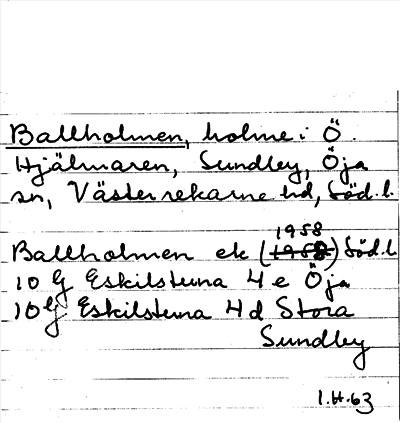 Ballholmen, holme i Ö.
Hjälmaren, Sundby, Öja
sn, Västerrekarne hd, Söd. l.
1958
Ballholmen ek (1958) Söd. l
10 G Eskilstuna 4 e Öja
10 G Eskilstuna 4 d Stora
Sundby
1.H.63